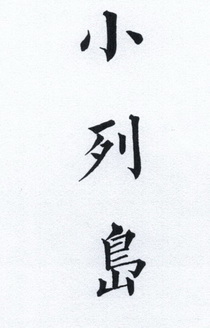 小列島